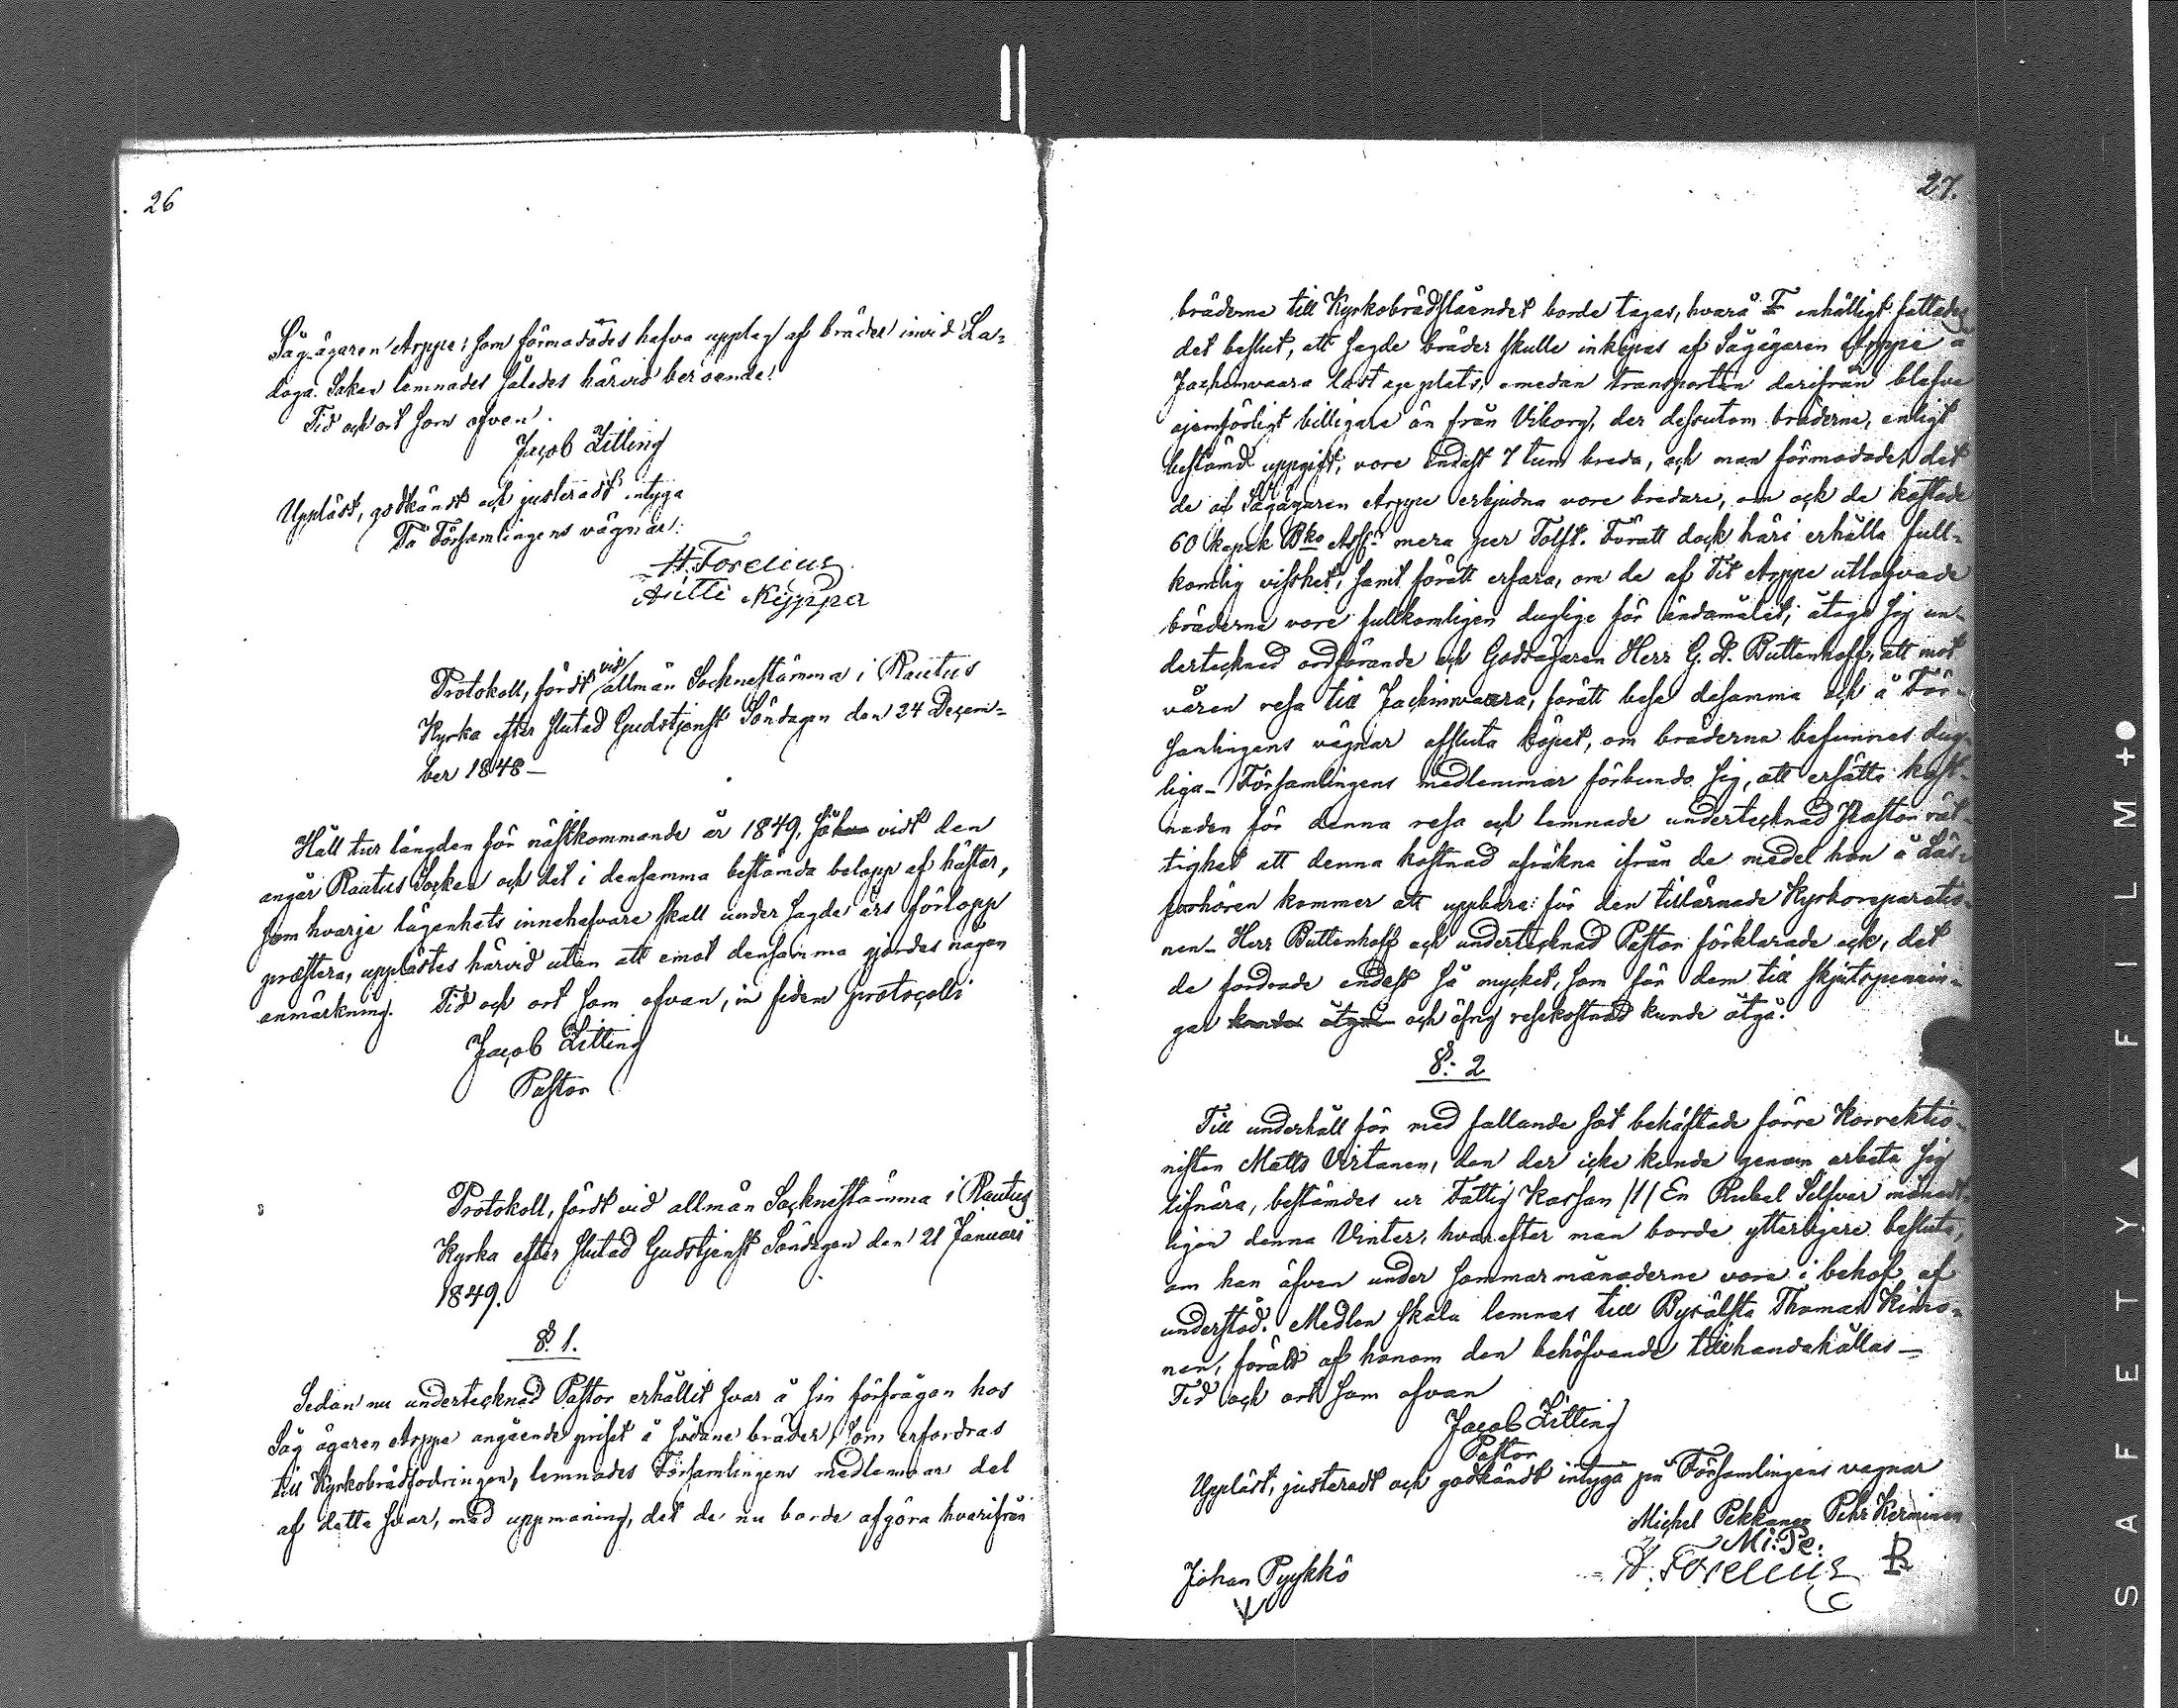 26
Såg-ägaren Arppe: som förmodades hafva upplag af bräder invid La-
doga. Saken lemnades således härvid beroende.
Tid och ort som ofvan.
Jacob Zitting
Uppläst, godkändt och justeradt intyga
På Församlingens vägnar:
H. Forelius
Antti Kippa
Protokoll, fördt vid allmän Socknestämma i Rautus
Kyrka efter slutad Gudstjenst Söndagen den 24 Decem-
ber 1848 —
Håll tur längden för nästkommande år 1849, så vidt den
angår Rautus Socken och det i densamma bestämda belopp af hästar,
som hvarje lägenhets innehafvare skall under sagde års förlopp
præstera, upplästes härvid utan att emot densamma gjordes någon
anmärkning. Tid och ort som ofvan, in fidem protocolli
Jacob Zitting
Pastor
Protokoll, fördt vid allmän Sockneståmma i Rautus
Kyrka efter slutad Gudstjenst Söndagen den 21 Januari
1849.
§. 1.
Sedan nu undertecknad Pastor erhållit svar å sin förfrågan hos
Såg ägaren Arppe angående priset å sådane bräder, som erfordras
till Kyrkobrädfodringen, lemnades Församlingens medlemmar del
af detta svar, med uppmaning, det de nu borde afgöra hvarifrån
27.
bräderna till Kyrkobrädslåendet borde tagas, hvarå enhälligt fattades
det beslut, att sagde bräder skulle inköpas af Sågägaren Arppe å
Jachimvaara lastageplats, emedan transporten derifrån blefve
ojemförligt billigare än från Viborg, der dessutom bräderna, enligt
bestämd uppgift, vore endast 7 tum breda, och man förmodade, det
de af Sågägaren Arppe erbjudna vore bredare, om ock de kostade
60 kopek Bko Ass. mera per Tolft. Föratt dock häri erhålla full-
komlig visshet, samt föratt erfara, om de af Tit Arppe utlofvade
bräderna vore fullkomligen duglige för ändamålet, åtogo sig un-
dertecknad ordförande och Godsägaren Herr G. A. Buttenhoff, att mot
våren resa till Jachimvaara, föratt bese desamma och å För-
samlingens vägnar afsluta köpet, om bräderna befunnes dug-
liga — Församlingens medlemmar förbundo sig, att ersätta kost-
naden för denna resa och lemnade undertecknad Pastor rät-
tighet att denna kostnad afräkna ifrån de medel han å Läs-
förhören kommer att uppbära för den tillärnade Kyrkoreparatio-
nen — Herr Buttenhoff och undertecknad Pastor förklarade ock, det
de fordrade endast så mycket, som för dem till skjutspennin-
gar kunde åtgå och öfrig resekostnad kunde åtgå.
§. 2
Till underhåll för med fallande sot behäftade förre Korrektio-
nisten Matts Virtanen, den der icke kunde genom arbete sig
lifnära, bestämdes ur Fattig Kassan /1/ En Rubel Silfver månadt-
ligen denna Vinter, hvarefter man borde ytterligere besluta,
om han äfven under sommarmånaderne vore i behof af
understöd. Medlen skola lemnas till Byrålsta Thomas Kimo-
nen, föratt af honom den behöfvande tillhandahållas —
Tid och ort som ofvan
Jacob Zitting
Pastor
Uppläst, justeradt och godkändt intyga på Församlingens vägnar
Michel Pekkanen Pehr Kerminen
Mi:Pe:
Johan Pyykkö
H. Forelius
SAFETY▲FILM+●